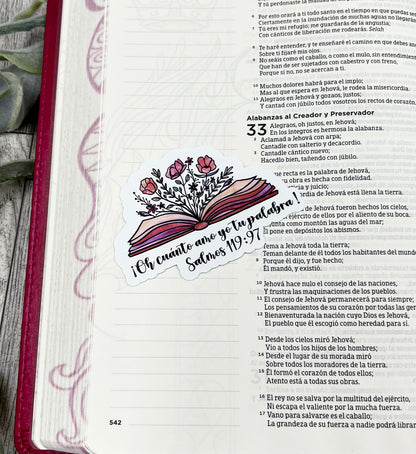 y tú perdonaste la maldad
6 Por esto orará a ti todo santo en el tiempo en que puedas
Ciertamente en la inundación de muchas aguas no llegarán
7 Tú eres mi refugio; me guardarás de la angustia;
Con cánticos de liberación me rodearás. Selah
8 Te haré entender, y te enseñaré el camino en que debes
Sobre ti fijaré mis ojos.
9 No seáis como el caballo, o como el mulo, sin entendimiento
Que han de ser sujetados con cabestro y con freno,
Porque si no, no se acercan a ti.
10 Muchos dolores habrá para el impío;
Mas al que espera en Jehová, le rodea la misericordia.
11 Alegraos en Jehová y gozaos, justos;
Y cantad con júbilo todos vosotros los rectos de corazón.
Alabanzas al Creador y Preservador
33 Alegraos, oh justos, en Jehová;
En los íntegros es hermosa la alabanza.
2 Aclamad a Jehová con arpa;
Cantadle con salterio y decacordio.
3 Cantadle cántico nuevo;
Hacedlo bien, tañendo con júbilo.
recta es la palabra de Jehová,
su obra es hecha con fidelidad.
justicia y juicio;
misericordia de Jehová está llena la tierra.
de Jehová fueron hechos los cielos,
ejército de ellos por el aliento de su boca.
como montón las aguas del mar;
pone en depósitos los abismos.
Tema a Jehová toda la tierra;
Teman delante de él todos los habitantes del mundo
9 Porque él dijo, y fue hecho;
Él mandó, y existió.
10 Jehová hace nulo el consejo de las naciones,
Y frustra las maquinaciones de los pueblos.
11 El consejo de Jehová permanecerá para siempre;
Los pensamientos de su corazón por todas las
12 Bienaventurada la nación cuyo Dios es Jehová,
El pueblo que él escogió como heredad para sí.
13 Desde los cielos miró Jehová;
Vio a todos los hijos de los hombres;
14 Desde el lugar de su morada miró
Sobre todos los moradores de la tierra.
15 Él formó el corazón de todos ellos;
Atento está a todas sus obras.
16 El rey no se salva por la multitud del ejército,
Ni escapa el valiente por la mucha fuerza.
17 Vano para salvarse es el caballo;
La grandeza de su fuerza a nadie podrá librar
¡Oh cuánto amo yo tu palabra!
Salmos 119:97
542